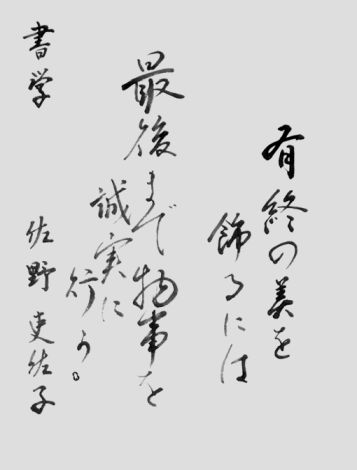 有終の美を
飾るには
最後まで物事を
誠実に
行う。
書学 佐野吏佐子